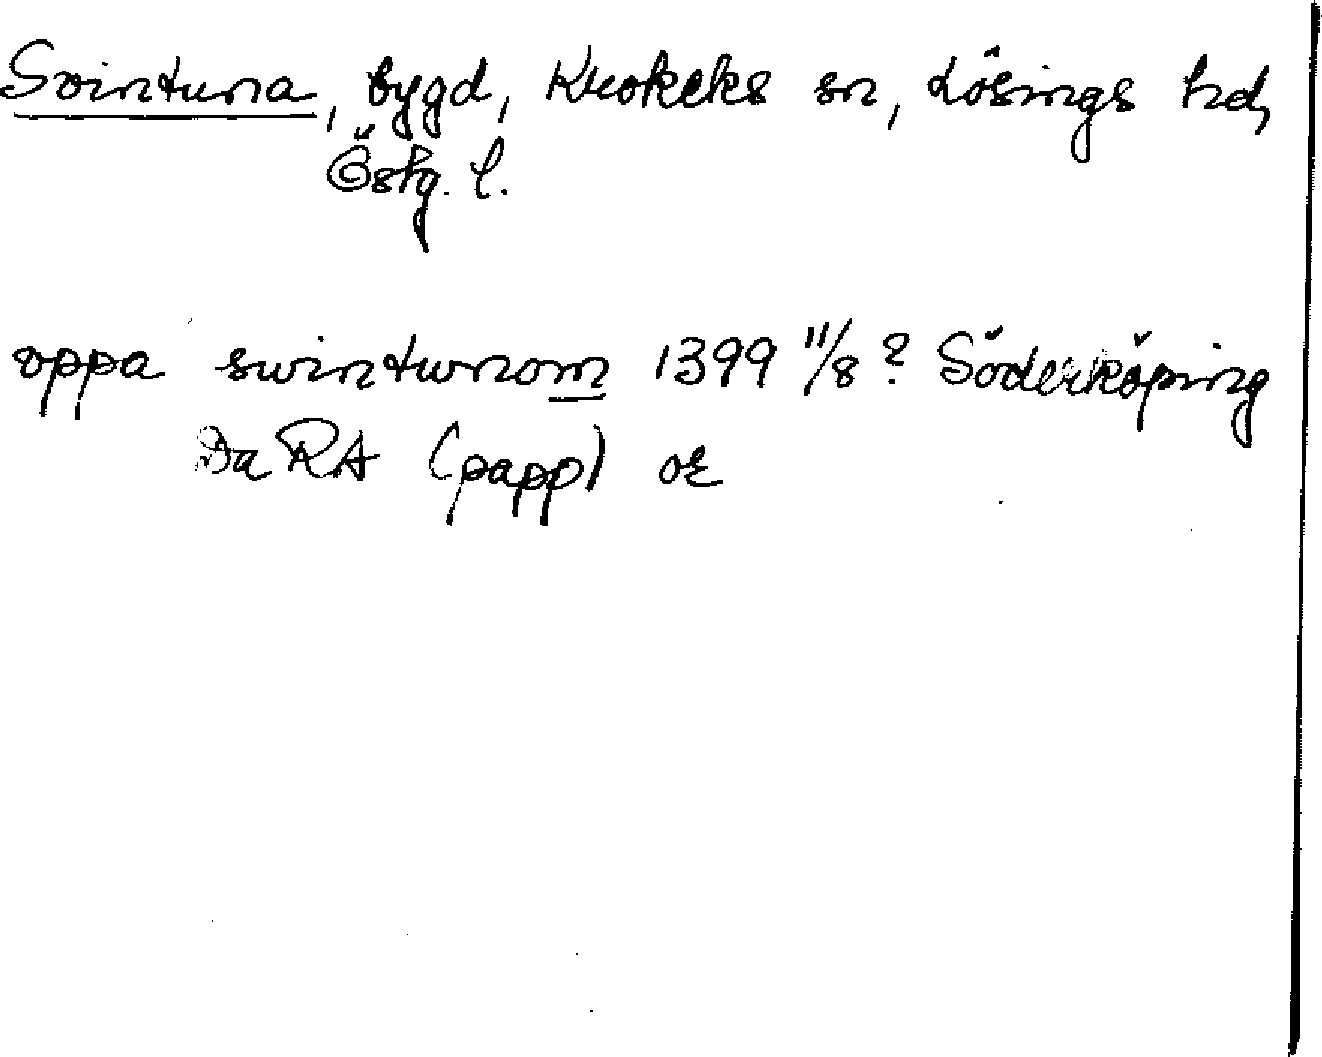 Svintuna, bygd, Krokeks sn, Lösings hd,
Östg. l.
oppa swintunom 1399 11/8? Söderköping
Da RA (papp) or